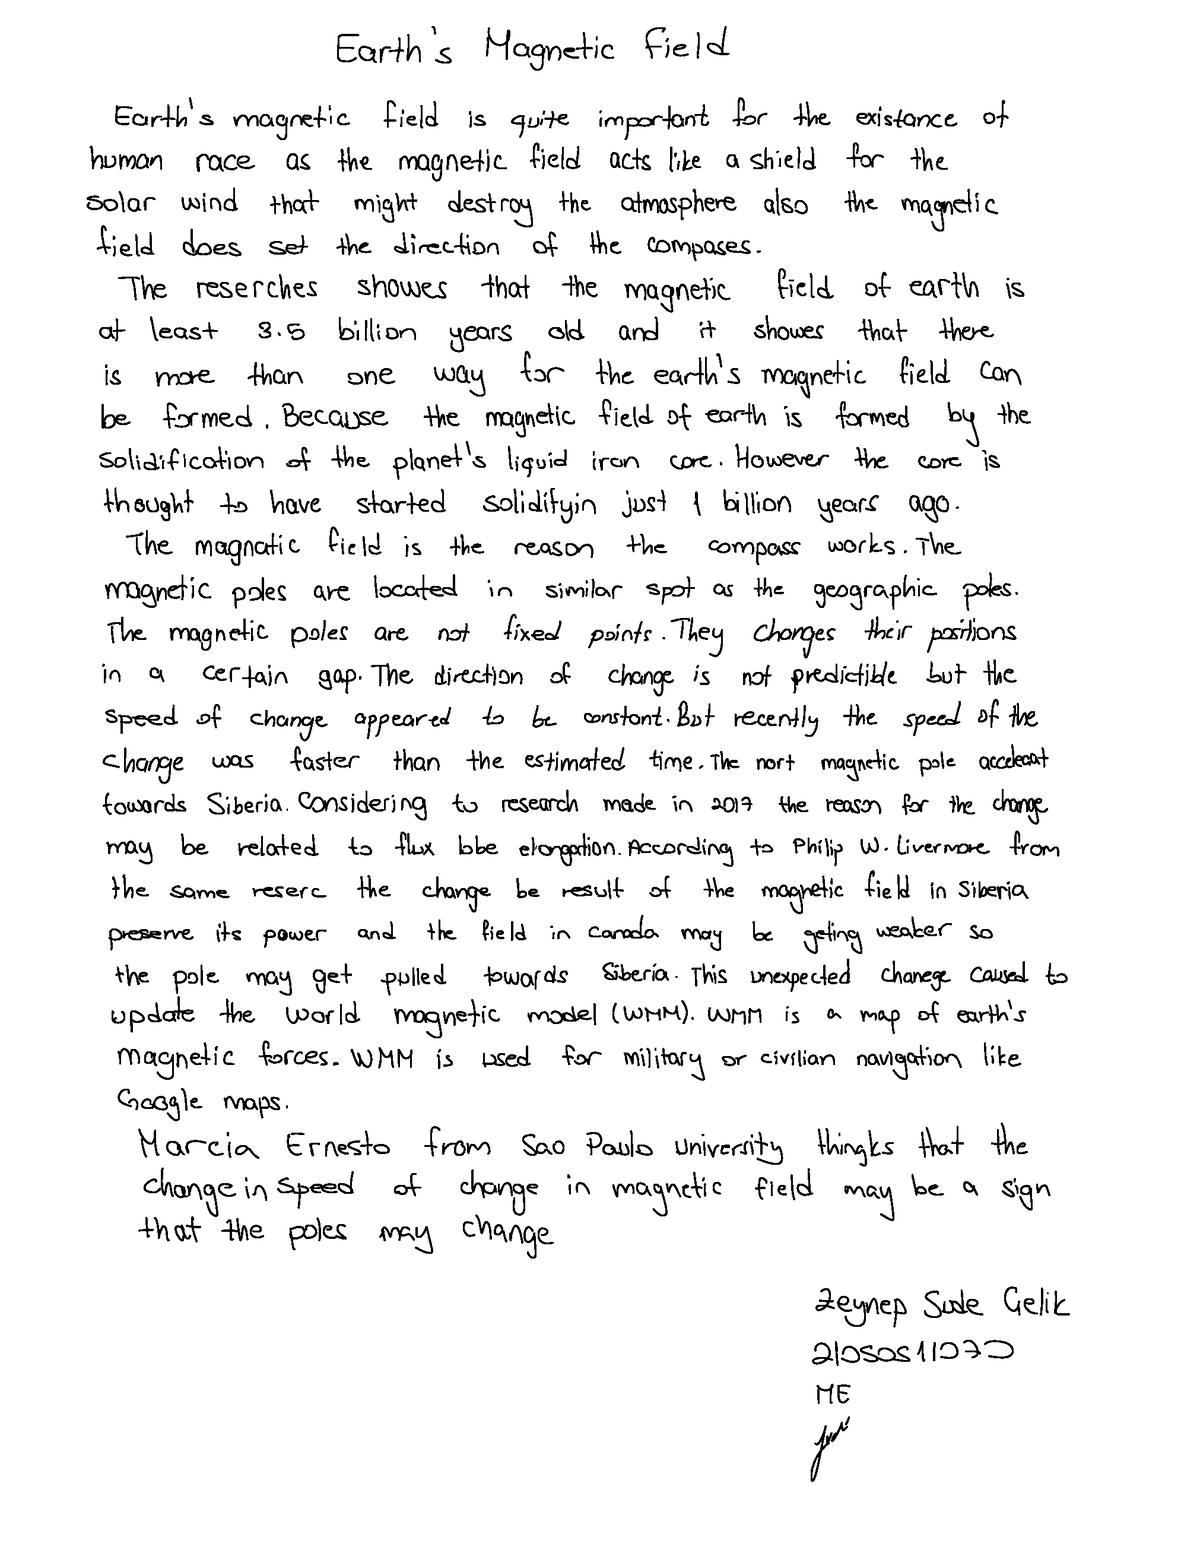 Earth's Magnetic Field
Earth's magnetic field is quite important for the existance of
human race as the magnetic field acts like a shield for the
solar wind that might destroy the atmosphere also the magnetic
field does set the direction of the compases.
The reserches showes that the magnetic field of earth is
at least 3.5 billion years old and it showes that there
is more than one way for the earth's magnetic field can
be formed. Because the magnetic field of earth is formed by the
solidification of the planet's liquid iron core. However the core is
thought to have started solidifyin just 1 billion years ago.
The magnatic field is the reason the compass works. The
magnetic poles are located in similar spot as the geographic poles.
The magnetic poles are not fixed points. They changes their positions
in a certain gap. The direction of change is not predictible but the
speed of change appeared to be constant. But recently the speed of the
change was faster than the estimated time. The nort magnetic pole
towards Siberia. Considering to research made in 2017 the reason for the change
may be related to flux lobe elongation. According to Philip W. Livermore from
the same reserc the change be result of the magnetic field in Siberia
preserve its power and the field in Canada may be geting weaker so
the pole may get pulled towards Siberia. This unexpected chanege caused to
update the world magnetic model (WMM). WMM is a map of earth's
magnetic forces. WMM is used for military or civilian navigation like
Google maps.
Marcia Ernesto from Sao Paulo university thingks that the
change in speed of change in magnetic field may be a sign
that the poles may change
Zeynep Sude Çelik
ME